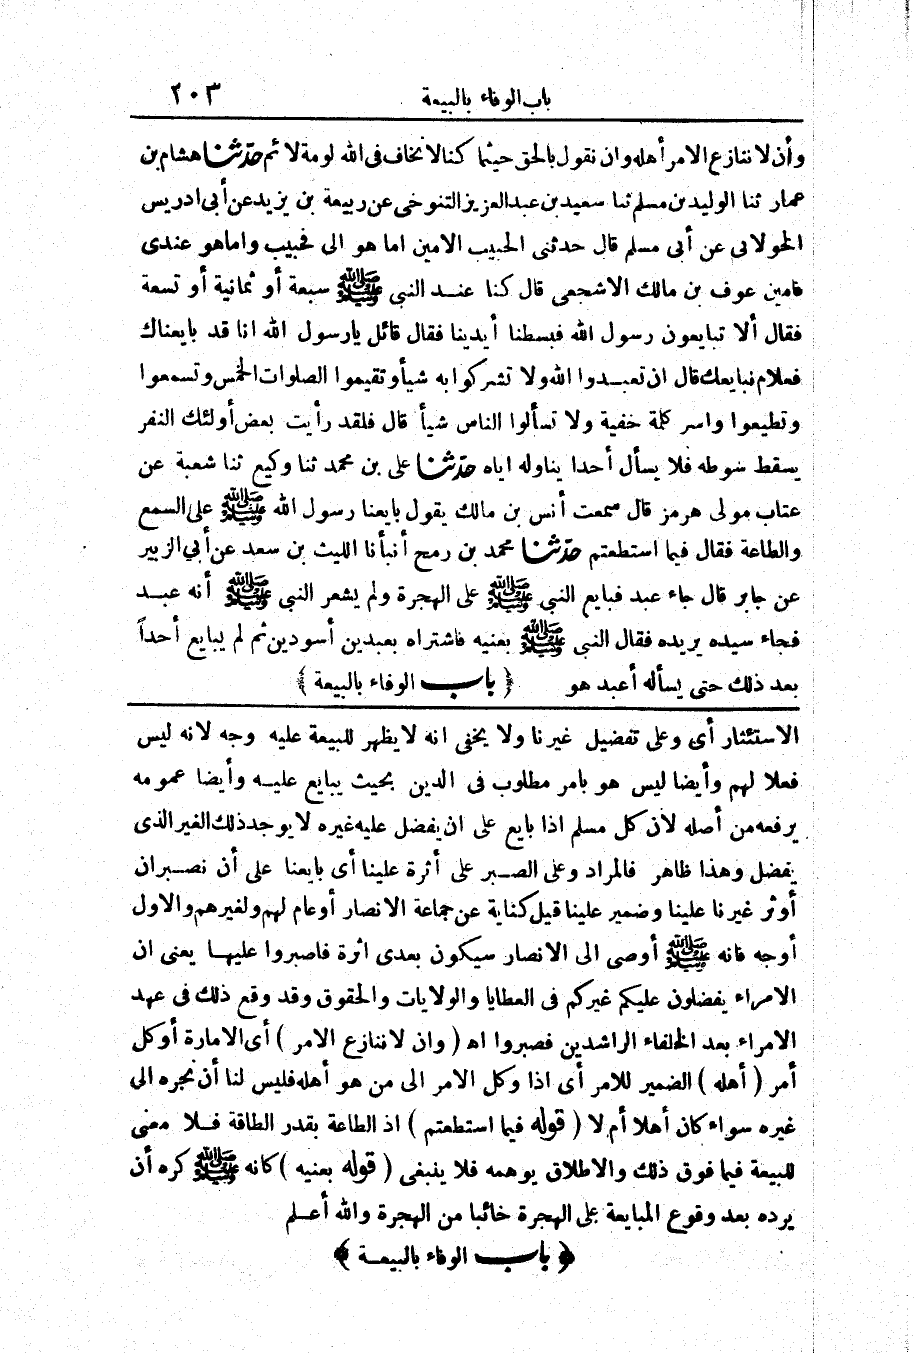 باب الوفاء بالبيعة ٢٠٣
وأن لا ننازع الامر أهله وان نقول بالحق حيثما كنا لا نخاف فى الله لومة لائم حدّثنا هشام بن
عمار ثنا الوليد بن مسلم ثنا سعيد بن عبد العزيز التنوخى عن ربيعة بن يزيد عن أبى ادريس
الخولانى عن أبى مسلم قال حدثنى الحبيب الامين اما هو الى فحبيب واما هو عندى
فامين عوف بن مالك الاشجعى قال كنا عنــد النبى ﷺ سبعة أو ثمانية أو تسعة
فقال ألا تبايعون رسول الله فبسطنا أيدينا فقال قائل يارسول الله انا قد بايعناك
فعلام نبايعك قال ان تعبــدوا الله ولا تشركوا به شيأ وتقيموا الصلوات الخمس وتسمعوا
وتطيعوا واسر كلمة خفية ولا تسألوا الناس شيأ قال فلقد رأيت بعض أولئك النفر
يسقط سوطه فلا يسأل أحدا يناوله اياه حدّثنا على بن محمد ثنا وكيع ثنا شعبة عن
عتاب مولى هرمز قال سمعت أنس بن مالك يقول بايعنا رسول الله ﷺ على السمع
والطاعة فقال فيما استطعتم حدّثنا محمد بن رمح أنبأنا الليث بن سعد عن أبى الزبير
عن جابر قال جاء عبد فبايع النبى ﷺ على الهجرة ولم يشعر النبى ﷺ أنه عبــد
فجاء سيده يريده فقال النبى ﷺ بعنيه فاشتراه بعبدين أسودين ثم لم يبايع أحداً
بعد ذلك حتى يسأله أعبد هو ﴿ باب الوفاء بالبيعة ﴾
الاستئثار أى وعلى تفضيل غيرنا ولا يخفى انه لا يظهر للبيعة عليه وجه لانه ليس
فعلا لهم وأيضا ليس هو بامر مطلوب فى الدين بحيث يبايع عليــه وأيضا عمومه
يرفعه من أصله لان كل مسلم اذا بايع على ان يفضل عليه غيره لا يوجد ذلك الغير الذى
يفضل وهذا ظاهر فالمراد وعلى الصــبر على أثرة علينا أى بايعنا على أن نصــبر ان
أوثر غيرنا علينا وضمير علينا قيل كناية عن جماعة الانصار أو عام لهم ولغيرهم والاول
أوجه فانه ﷺ أوصى الى الانصار سيكون بعدى اثرة فاصبروا عليهــا يعنى ان
الامراء يفضلون عليكم غيركم فى العطايا والولايات والحقوق وقد وقع ذلك فى عهد
الامراء بعد الخلفاء الراشدين فصبروا اه ( وان لا ننازع الامر ) أى الامارة أو كل
أمر ( أهله ) الضمير للامر أى اذا وكل الامر الى من هو أهله فليس لنا أن نجره الى
غيره سواء كان أهلا أم لا ( قوله فيما استطعتم ) اذ الطاعة بقدر الطاقة فــلا معنى
للبيعة فيما فوق ذلك والاطلاق يوهمه فلا ينبغى ( قوله بعنيه ) كانه ﷺ كره أن
يرده بعد وقوع المبايعة على الهجرة خائبا من الهجرة والله أعــلم
﴿ باب الوفاء بالبيعــة ﴾